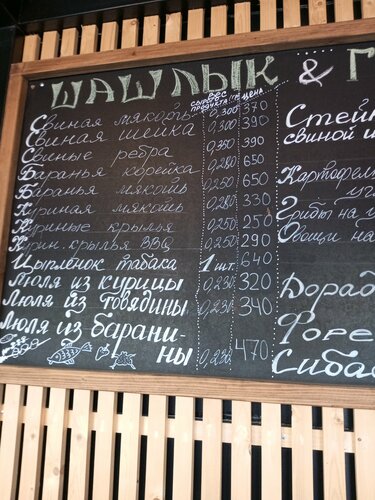 ШАШЛЫК & Г
ВЕС СЫРОГО ПРОДУКТА/ГР. ЦЕНА
Свиная мякоть 0,300 370
Свиная шейка 0,300 390
Свиные ребра 0,350 390
Баранья корейка 0,280 650
Баранья мякоть 0,250 650
Куриная мякоть 0,280 330
Куриные крылья 0,250 250
Курин. крылья BBQ 0,250 290
Цыплёнок табака 1 шт. 640
Люля из курицы 0,230 320
Люля из говядины 0,230 340
Люля из барани-
ны 0,230 470
Стейк
свиной
Картофель
Грибы на
Овощи на
Дорад
Форе
Сибас